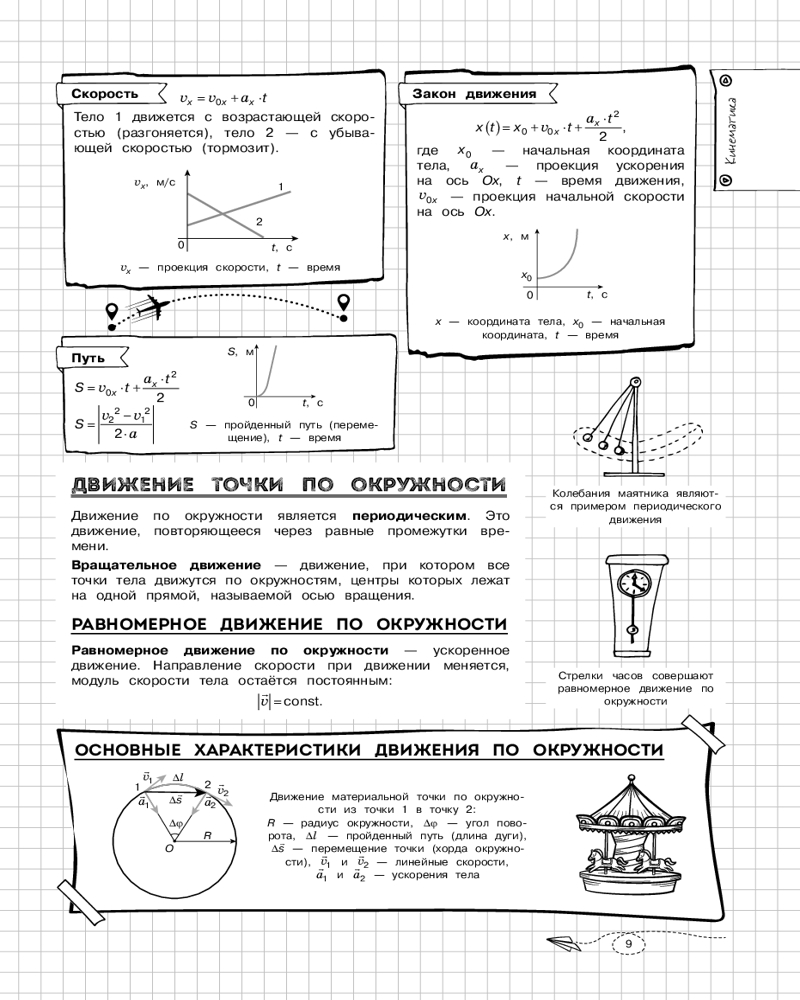 Скорость
vₓ = v₀ₓ + aₓ · t
Тело 1 движется с возрастающей скоро-
стью (разгоняется), тело 2 — с убыва-
ющей скоростью (тормозит).
vₓ, м/с
1
2
0
t, с
vₓ — проекция скорости, t — время
Закон движения
x(t) = x₀ + v₀ₓ · t + aₓ · t² / 2,
где x₀ — начальная координата
тела, aₓ — проекция ускорения
на ось Ox, t — время движения,
v₀ₓ — проекция начальной скорости
на ось Ox.
x, м
x₀
0
t, с
x — координата тела, x₀ — начальная
координата, t — время
Кинематика
Путь
S = v₀ₓ · t + aₓ · t² / 2
S = |v₂² − v₁² / 2 · a|
S, м
0
t, с
S — пройденный путь (переме-
щение), t — время
ДВИЖЕНИЕ ТОЧКИ ПО ОКРУЖНОСТИ
Движение по окружности является периодическим. Это
движение, повторяющееся через равные промежутки вре-
мени.
Вращательное движение — движение, при котором все
точки тела движутся по окружностям, центры которых лежат
на одной прямой, называемой осью вращения.
Колебания маятника являют-
ся примером периодического
движения
РАВНОМЕРНОЕ ДВИЖЕНИЕ ПО ОКРУЖНОСТИ
Равномерное движение по окружности — ускоренное
движение. Направление скорости при движении меняется,
модуль скорости тела остаётся постоянным:
|v⃗| = const.
Стрелки часов совершают
равномерное движение по
окружности
ОСНОВНЫЕ ХАРАКТЕРИСТИКИ ДВИЖЕНИЯ ПО ОКРУЖНОСТИ
v⃗₁ Δl
1 2 v⃗₂
a⃗₁ Δs⃗ a⃗₂
Δφ
R
O
Движение материальной точки по окружно-
сти из точки 1 в точку 2:
R — радиус окружности, Δφ — угол пово-
рота, Δl — пройденный путь (длина дуги),
Δs⃗ — перемещение точки (хорда окружно-
сти), v⃗₁ и v⃗₂ — линейные скорости,
a⃗₁ и a⃗₂ — ускорения тела
9